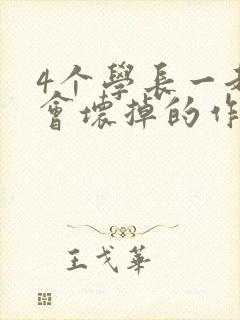 4个學長一
會壞掉的作
王戈華